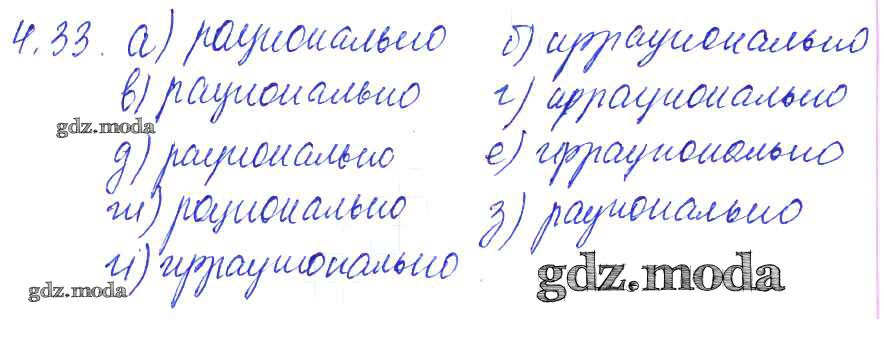 4.33. а) рационально б) иррационально
в) рационально г) иррационально
gdz.moda
д) рационально е) иррационально
ж) рационально з) рационально
и) иррационально
gdz.moda
gdz.moda